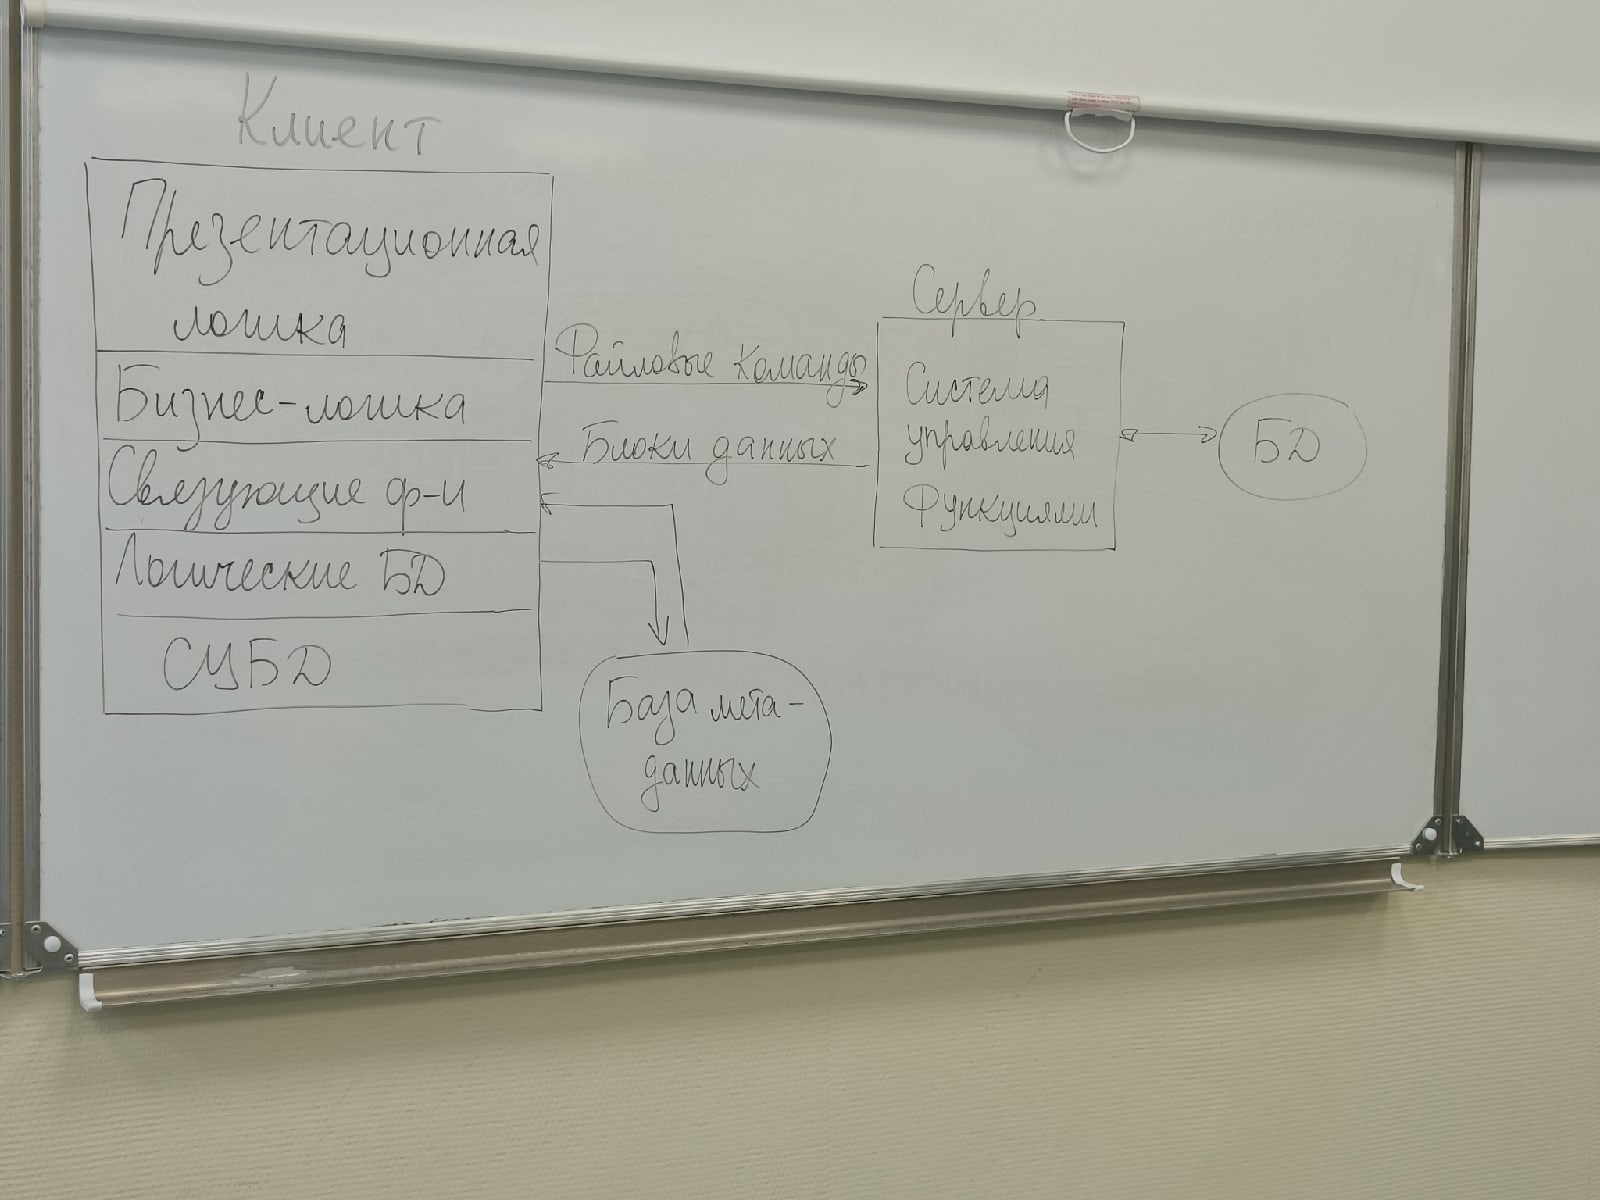 Клиент
Презентационная
логика
Бизнес-логика
Связующие ф-и
Логические БД
СУБД
Файловые команды
Блоки данных
База мета-
данных
Сервер
Система
управления
Функциями
БД